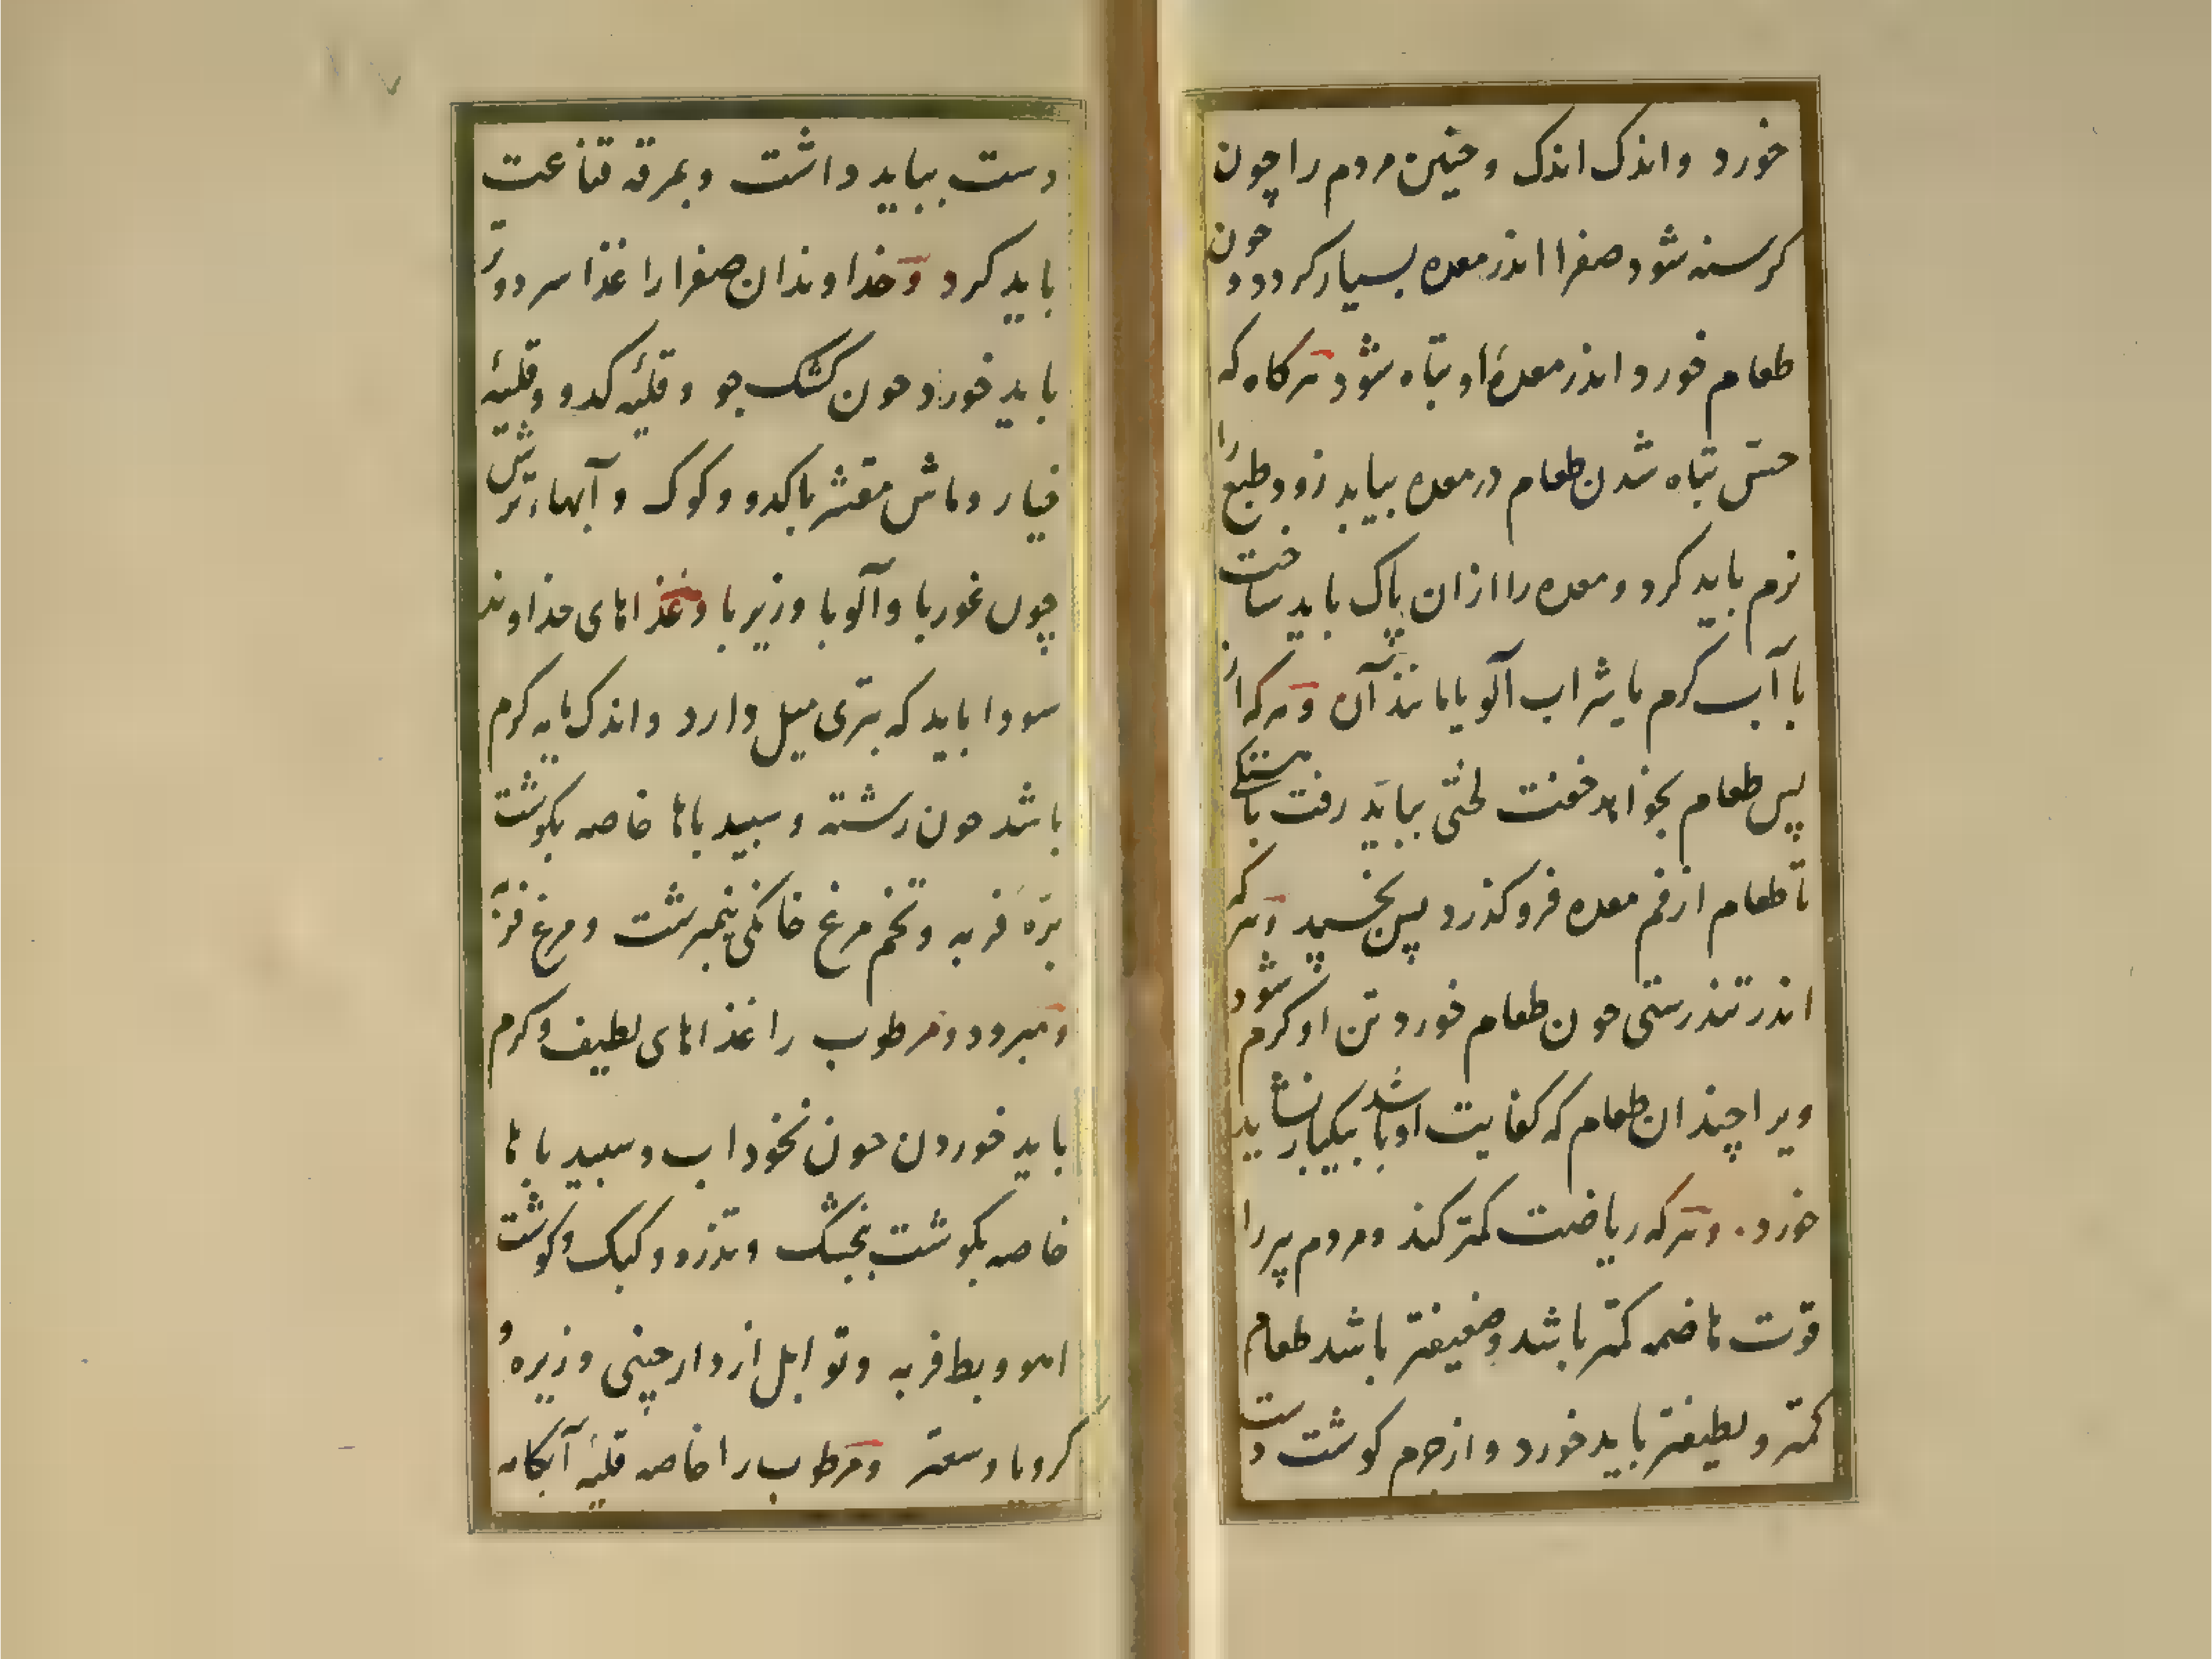 خورد واندک اندک وچنین مردم را چون
کرسنه شود صفرا اندر معده بسیار کردد و حون
طعام خورد اندر معدهٔ او تباه شود هرکاه که
حسّ تباه شدن طعام در معده بیابد زود طبع را
نرم باید کرد ومعده را ازان پاک باید ساخت
با آب کرم یا شراب آلو یا مانند آن وهرکه از
پس طعام بخواهد خفت لختی بباید رفت باهستکی
تا طعام از فم معده فرو کذرد پس بخسپد وهرکه
اندر تندرستی حون طعام خورد تن او کرم شود
ویرا چندان طعام که کفایت او باشد بیکبار نشاید
خورد. وهرکه ریاضت کمتر کند ومردم پیر را
قوّت هاضمه کمتر باشد وضعیفتر باشد طعام
کمتر ولطیفتر باید خورد واز جرم کوشت دست
دست بباید داشت وبمرقه قناعت
باید کرد وخداوندان صفرا را غذا سرد وتر
باید خورد حون کشک جو وقلیهٔ کدو وقلیهٔ
خیار وماش مقشر با کدو وکوک وآبهاء ترش
چون غوربا وآلوبا وزیربا وغذاهای خداوند
سودا باید که بتری میل دارد واندک مایه کرم
باشد حون رشته وسبیدباها خاصه بکوشت
برّهٔ فربه وتخم مرغ خانکی نیمبرشت ومرغ فربه
ومبرود ومرطوب را غذاهای لطیف وکرم
باید خوردن حون نخوداب وسبیدباها
خاصه بکوشت بنجشک وتذرو وکبک وکوشت
اهو وبط فربه وتوابل از دارچینی وزیره و
کرویا وسعتر ومرطوب را خاصه قلیهٔ آبکامه